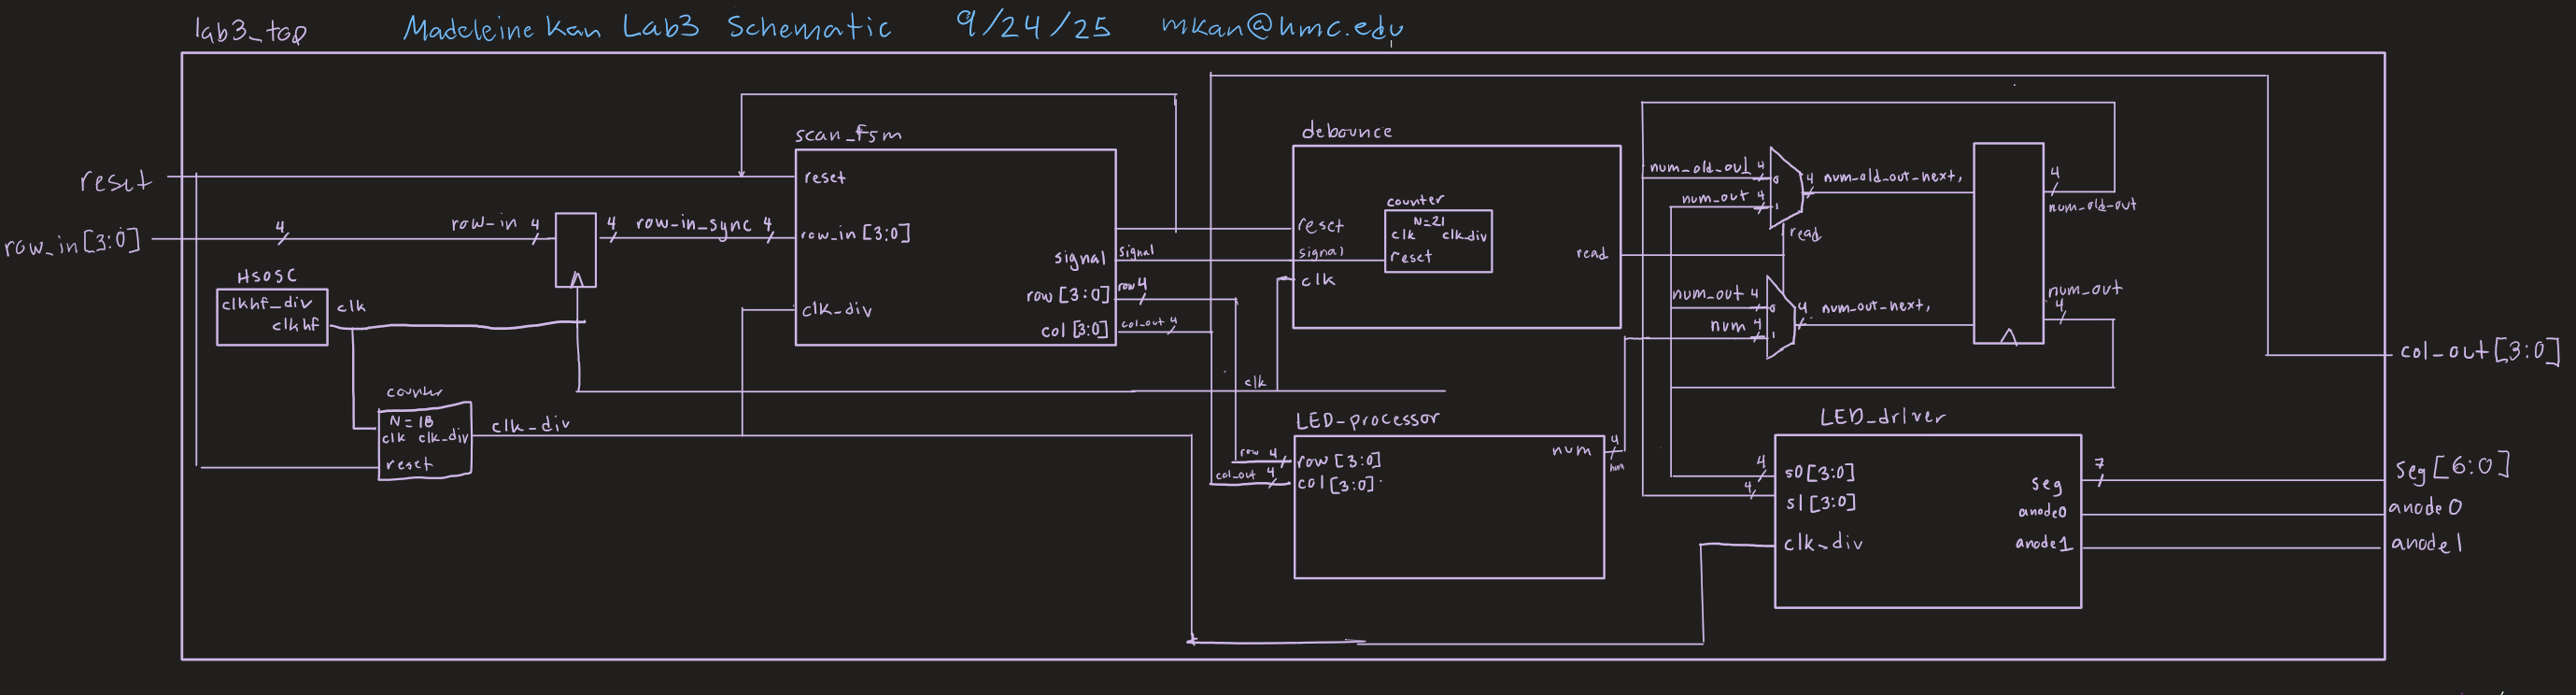 lab3_top
Madeleine Kan Lab3 Schematic 9/24/25 mkan@hmc.edu
reset
row_in[3:0]
4
row_in 4
4 row_in_sync 4
HSOSC
clkhf_div
clkhf
clk
counter
N=18
clk clk_div
reset
clk_div
scan_fsm
reset
row_in [3:0]
signal
row [3:0]
clk_div
col [3:0]
signal
row 4
col_out 4
debounce
counter
N=21
clk clk_div
reset
reset
signal
clk
read
clk
LED-processor
row 4
col_out 4
row [3:0]
col [3:0]
num
4
num
num_old_out 4
num_out 4
0
1
4 num_old_out-next,
read
num_out 4
num 4
0
1
4 num_out-next,
4
num_old-out
num_out
4
LED_driver
4
4
s0[3:0]
s1[3:0]
clk_div
seg
anode0
anode1
7
col_out[3:0]
seg[6:0]
anode0
anode1